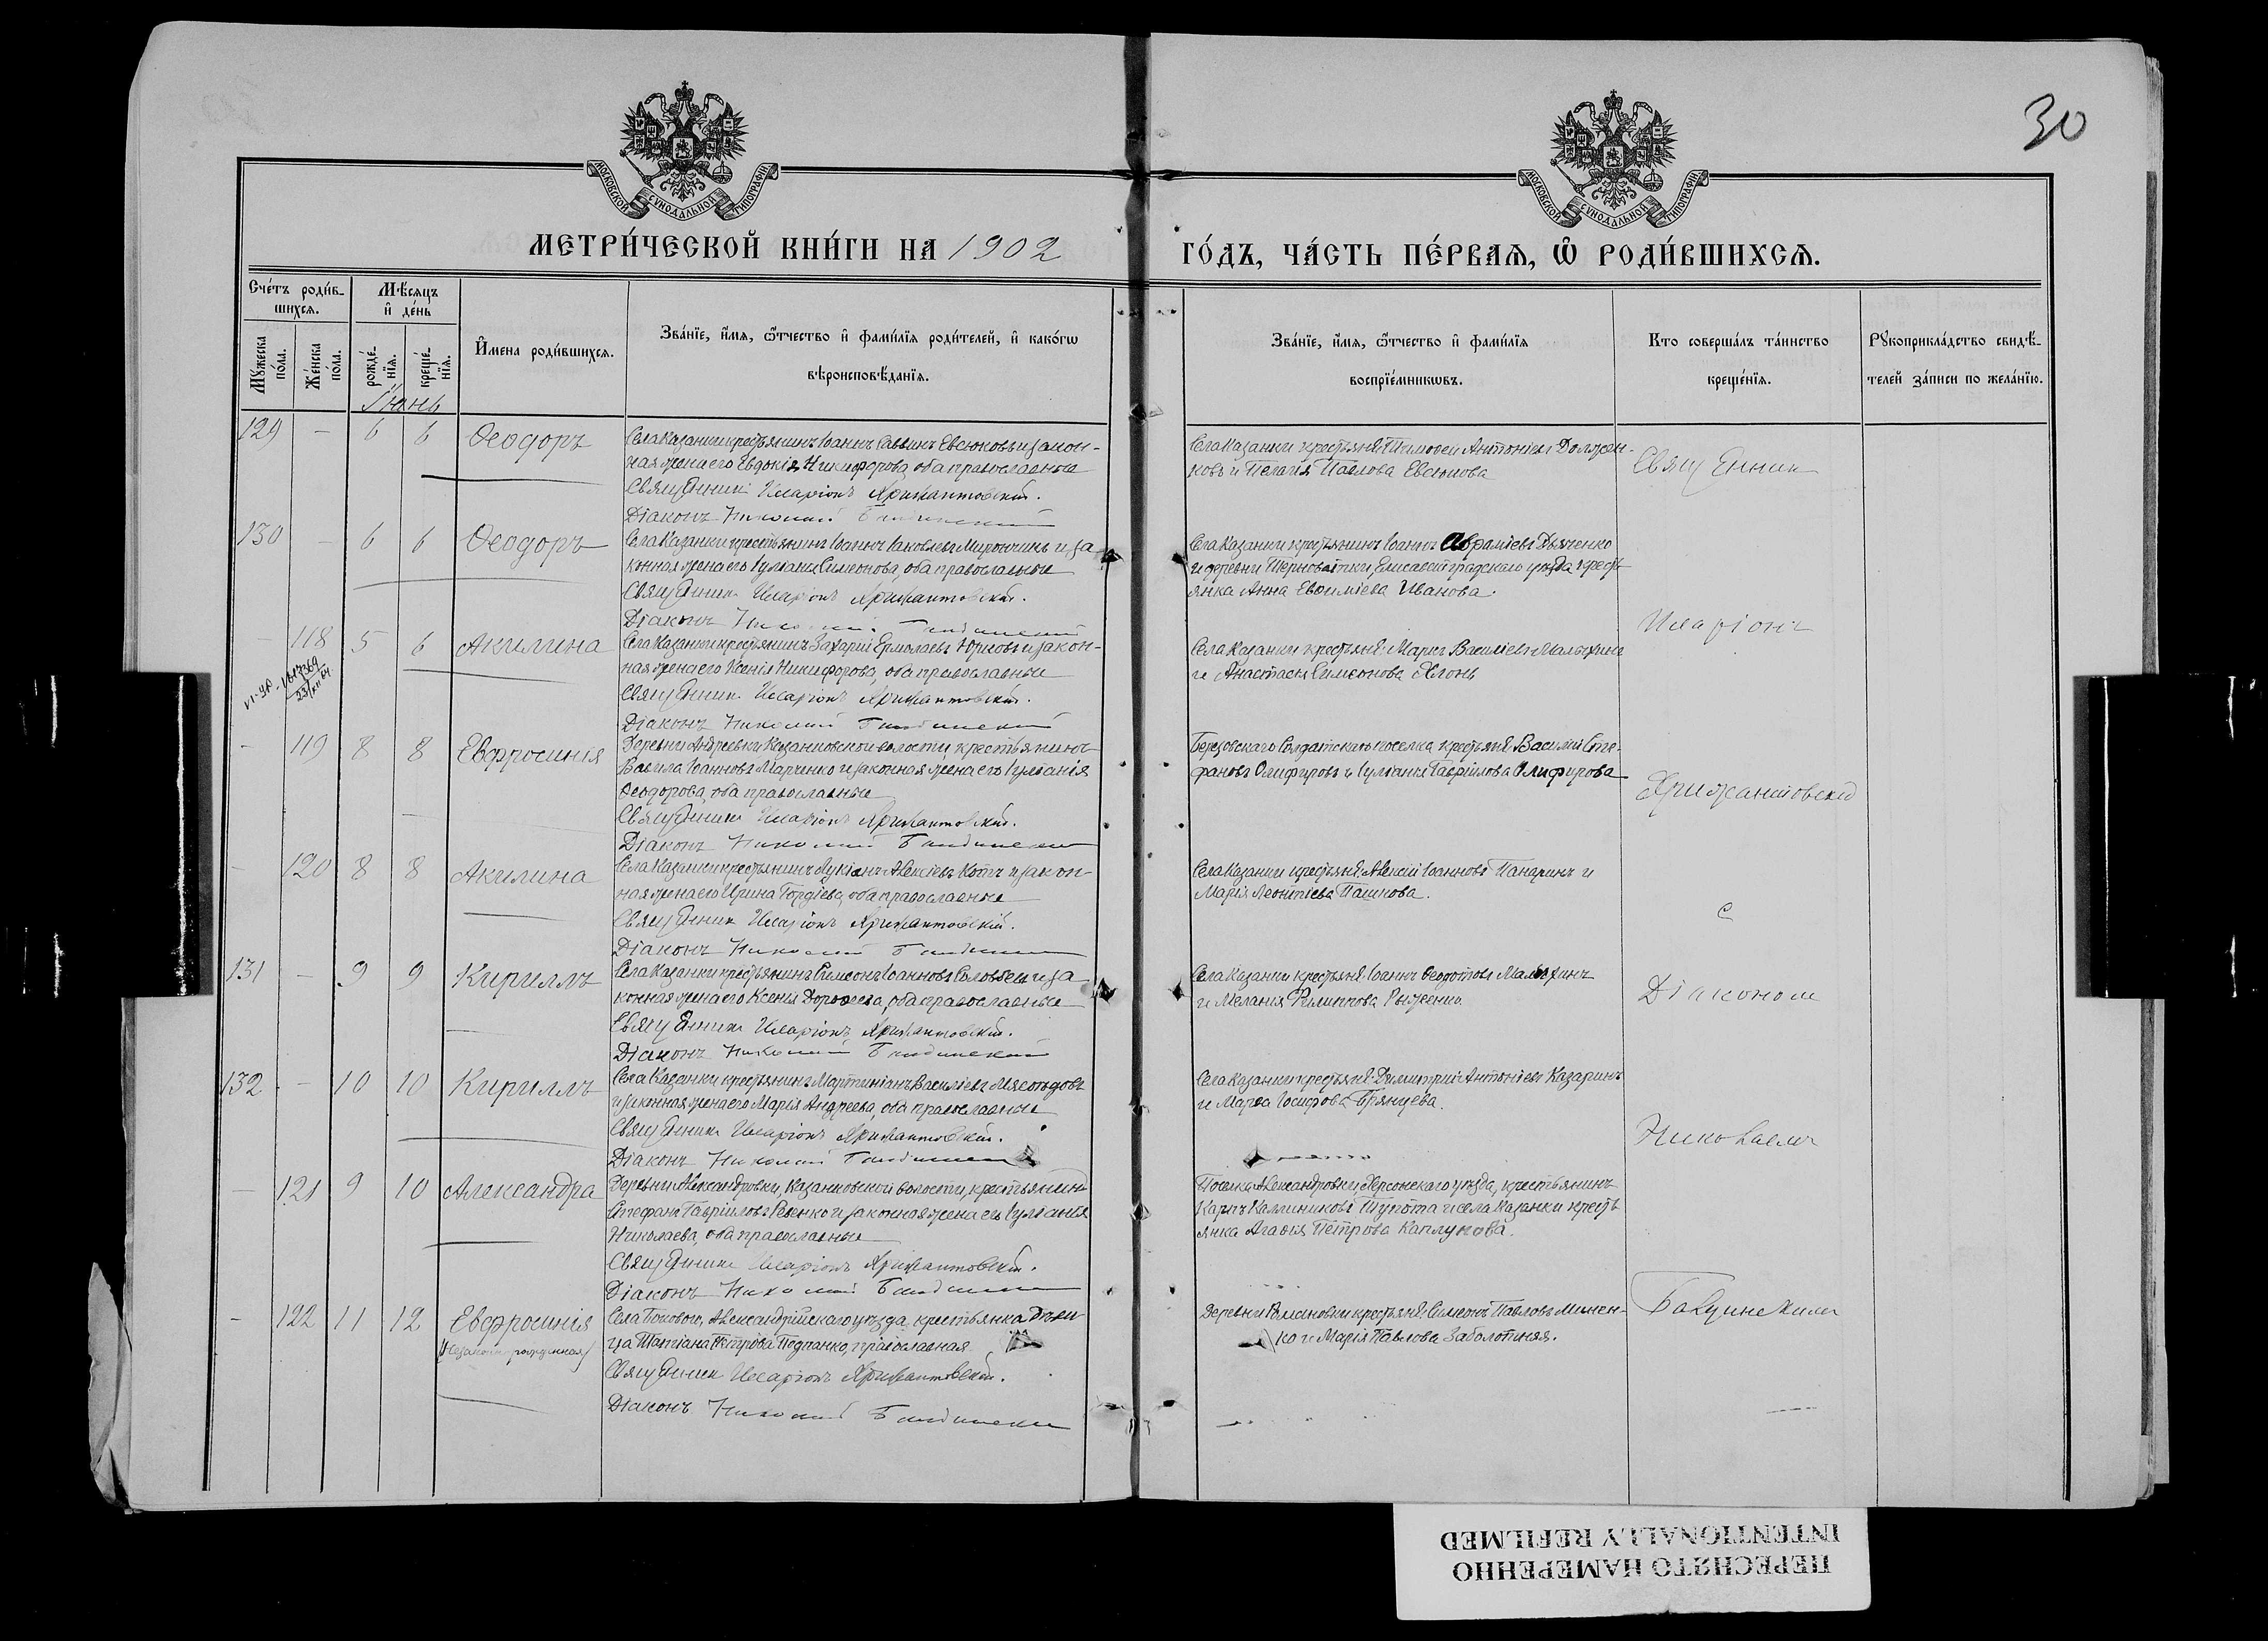 30
МОСКОВСКОЙ СУНОДАЛЬНОЙ ТИПОГРАФІИ
МОСКОВСКОЙ СУНОДАЛЬНОЙ ТИПОГРАФІИ
МЕТРИ́ЧЕСКОЙ КНИ́ГИ НА 1902
ГО́ДЪ, ЧА́СТЬ ПЕ́РВАѦ, Ѡ҆ РОДИ́ВШИХСѦ.
Сче́тъ роди́в-
шихсѧ.
Мѣ́сѧцъ
и҆ де́нь
Мꙋ́жеска
по́ла.
Же́нска
по́ла.
рожде́-
нїѧ.
креще́-
нїѧ.
И҆мена роди́вшихсѧ.
Зва́нїе, и҆́мѧ, ѻ҆́тчество и҆ фами́лїѧ роди́телей, и҆ како́гѡ
вѣроисповѣ́данїѧ.
Зва́нїе, и҆́мѧ, ѻ҆́тчество и҆ фами́лїѧ
воспрїе́мникѡвъ.
Кто соверша́лъ та́инство
креще́нїѧ.
Рꙋкоприкла́дство свидѣ́-
телей за́писи по жела́нїю.
Іюнь
129 - 6 6 Ѳеодоръ
Села Казанки крестьянинъ Іоаннъ Саввинъ Евсюковъ и закон-
ная жена его Евдокія Никифорова, оба православные
Священникъ Иларіонъ Хрижантовскій.
Діаконъ Николай
Села Казанки крестьяне: Тимоѳей Антоніевъ Должен-
ковъ и Пелагія Павлова Евсюкова
Священник
130 - 6 6 Ѳеодоръ
Села Казанки крестьянинъ Іоаннъ Іаковлевъ Мирончикъ и за-
конная жена его Іуліанія Симеонова, оба православные
Священникъ Иларіонъ Хрижантовскій.
Діаконъ
Села Казанки крестьянинъ Іоаннъ Авраміевъ Дьяченко
и деревни Терноватки, Елисаветградскаго уѣзда крест-
янка Анна Евѳиміева Иванова.
Иларіонъ
- 118 5 6 Акилина
Села Казанки крестьянинъ Захарій Ермолаевъ Юрковъ и закон-
ная жена его Ксенія Никифорова, оба православные
Священникъ Иларіонъ Хрижантовскій.
Діаконъ Николай
Села Казанки крестьяне: Маркъ Василіевъ Малыхинъ
и Анастасія Симеонова
- 119 8 8 Евфросинія
Деревни Андреевки Казанковской волости, крестьянинъ
Вавила Іоанновъ Марченко и законная жена его Іуліанія
Ѳеодорова, оба православные
Священникъ Иларіонъ Хрижантовскій.
Діаконъ Николай
Березовскаго Солдатскаго поселка крестьяне: Василій Сте-
фановъ Олифировъ и Іуліанія Гавріилова Олифирова
Хрижантовскій
- 120 8 8 Акилина
Села Казанки крестьянинъ Лукіанъ Алексіевъ Котъ и закон-
ная жена его Ирина Гордіева, оба православные
Священник Иларіонъ Хрижантовскій.
Діаконъ Николай
Села Казанки крестьяне: Алексій Іоанновъ Панаринъ и
Марія Леонтіева Пашкова.
с
131 - 9 9 Кириллъ
Села Казанки крестьянинъ Симеонъ Іоанновъ Соловьевъ и за-
конная жена его Ксенія Дороѳеева, оба православные
Священникъ Иларіонъ Хрижантовскій.
Діаконъ Николай
Села Казанки крестьяне: Іоаннъ Ѳеодотовъ Малыхинъ
и Меланія Филиппова Рыженко
Діаконом
132 - 10 10 Кириллъ
Села Казанки крестьянинъ Мартиніанъ Василіевъ Мясоѣдовъ
и законная жена его Марія Андреева, оба православные
Священникъ Иларіонъ Хрижантовскій.
Діаконъ Николай
Села Казанки крестьяне: Димитрій Антоніевъ Казаринъ
и Марѳа Іосифова Брянцева.
Николаемъ
- 121 9 10 Александра
Деревни Александровки, Казанковской волости, крестьянинъ
Стефанъ Гавріиловъ Ревенко и законная жена его Іуліанія
Николаева, оба православные
Священникъ Иларіонъ Хрижантовскій.
Діаконъ Николай
Поселка Александровки, Херсонскаго уѣзда, крестьянинъ
Карпъ Каллиниковъ Тупота и села Казанки крест-
янка Агаѳія Петрова Каплунова.
- 122 11 12 Евфросинія
(незаконнорожденная)
Села Попового, Александрійскаго уѣзда, крестьянка дѣви-
ца Татіана Петрова Педпанко, православная
Священник Иларіонъ Хрижантовскій.
Діаконъ Николай
Деревни Романовки крестьяне: Симеонъ Павловъ Минен-
ко и Марія Павлова Заболотняя.
ПЕРЕСНЯТО НАМЕРЕННО
INTENTIONALLY REFILMED